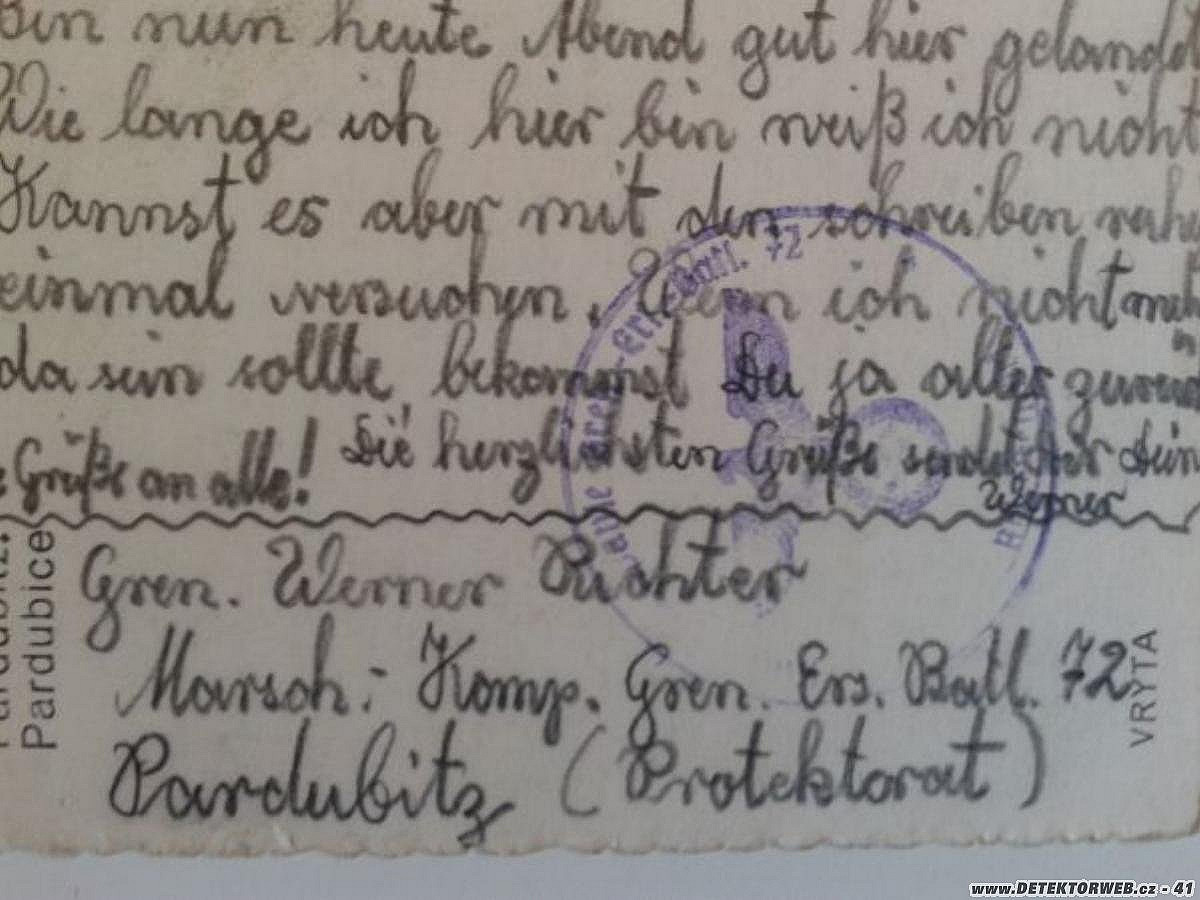 Bin nun heute Abend gut hier gelandet
Wie lange ich hier bin weiß ich nicht
Kannst es aber mit den schreiben ruhi
einmal versuchen. Wenn ich nicht meh
da sein sollte bekommst Du ja alles zurück
Grüße an alle! Die herzlichsten Grüße sendet Dir Dein
Werner
Gren. Werner Richter
Marsch: Komp. Gren. Ers. Batl. 72
Pardubitz (Protektorat)
Pardubice
VRYTA
Gren.-Ers.-Batl. 72
www.DETEKTORWEB.cz - 41